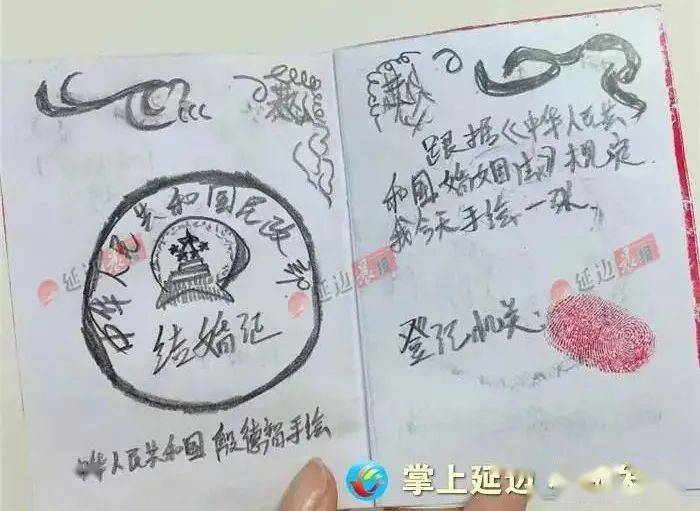 中华人民共和国民政
结婚记
中华人民共和国 殷德智手绘
跟据《中华人民共
和国婚姻法》规定
我今天手绘一张
登记机关:
延边晨报
延边晨报
延边晨报
掌上延边